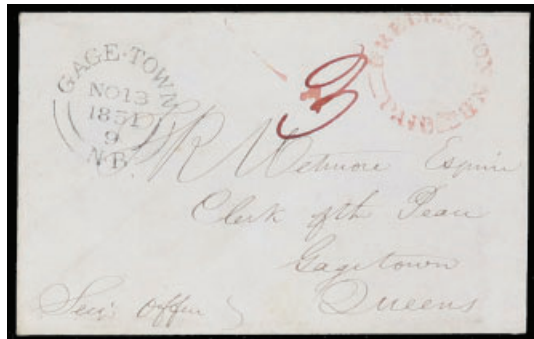 GAGE-TOWN
NO 13
1851
9
N.B.
3
FREDERICTON N.B. PAID
R Wetmore Esquire
Clerk of the Peace
Gagetown
Queens
Secy's Office